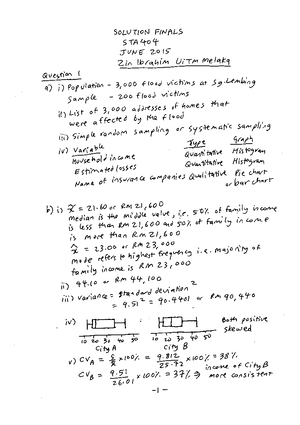 SOLUTION FINALS
STA404
JUNE 2015
Zin Ibrahim UiTM Melaka
Question 1
a) i) Population - 3,000 flood victims at Sg. Lembing
Sample - 200 flood victims
ii) List of 3,000 addresses of homes that
were affected by the flood
iii) Simple random sampling or systematic sampling
iv) Variable Type Graph
Household income Quantitative Histogram
Estimated losses Quantitative Histogram
Name of insurance companies Qualitative Pie chart
or bar chart
b) i) x̃ = 21.60 or RM 21,600
Median is the middle value, i.e. 50% of family income
is less than RM 21,600 and 50% of family income
is more than RM 21,600
x̂ = 23.00 or RM 23,000
mode refers to highest frequency i.e. majority of
family income is RM 23,000
ii) 44.10 or RM 44,100
iii) variance = standard deviation²
= 9.51² = 90.4401 or RM 90,440
iv) Both positive
skewed
10 20 30 40 50 10 20 30 40 50
City A City B
v) CV_A = × 100% = 9.812/25.72 × 100% = 38%
CV_B = 9.51/26.01 × 100% = 37% ⇒ income of City B
more consistent
-1-